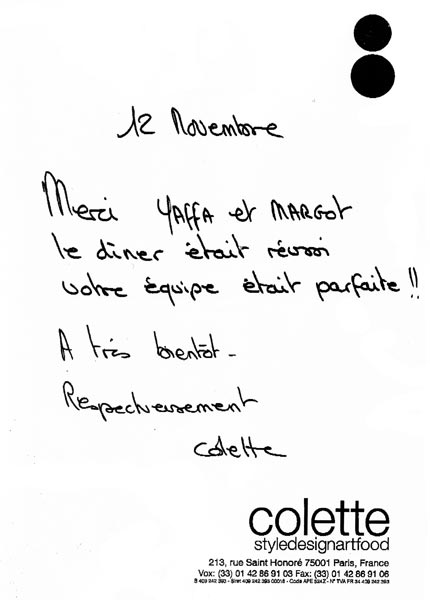 12 Novembre
Merci YAFFA et MARGOT
le dîner était réussi
votre équipe était parfaite !!
A très bientôt -
Respectueusement
Colette
colette
styledesignartfood
213, rue Saint Honoré 75001 Paris, France
Vox: (33) 01 42 86 91 03 Fax: (33) 01 42 86 91 06